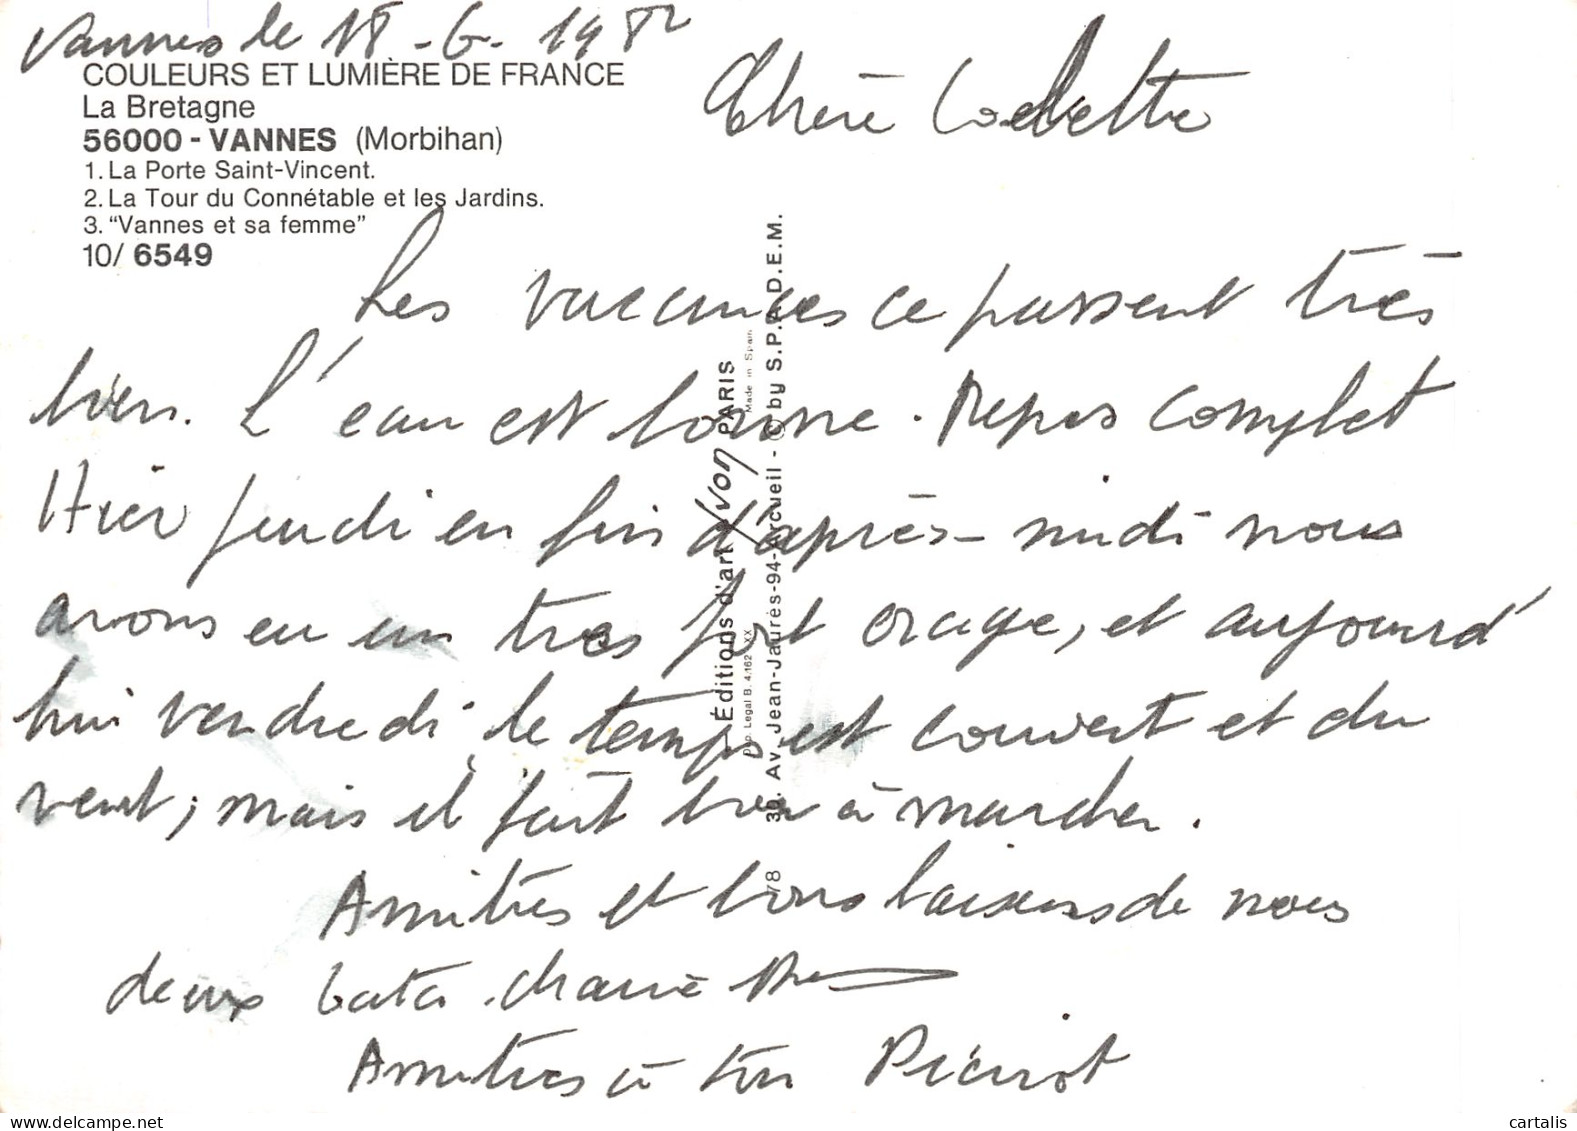 Vannes le 18-6-1982
COULEURS ET LUMIÈRE DE FRANCE
La Bretagne
56000 - VANNES (Morbihan)
1. La Porte Saint-Vincent.
2. La Tour du Connétable et les Jardins.
3. "Vannes et sa femme"
10/ 6549
Chère
Les vacances ce passent très
bien. L'eau est bonne. Repos complet
Hier jeudi en fin d'après-midi nous
avons eu un très fort orage, et aujourd'
hui vendredi le temps est couvert et du
vent; mais il fait bon à marcher.
Amitiés et bons baisers de nous
deux
Amitiés à ton Pierrot
Éditions d'art Yvon PARIS
Made in Spain
Dép. Legal B. 4.162-XX
Av. Jean-Jaurès-94-Arcueil - © by S.P.A.D.E.M.
78
cartalis